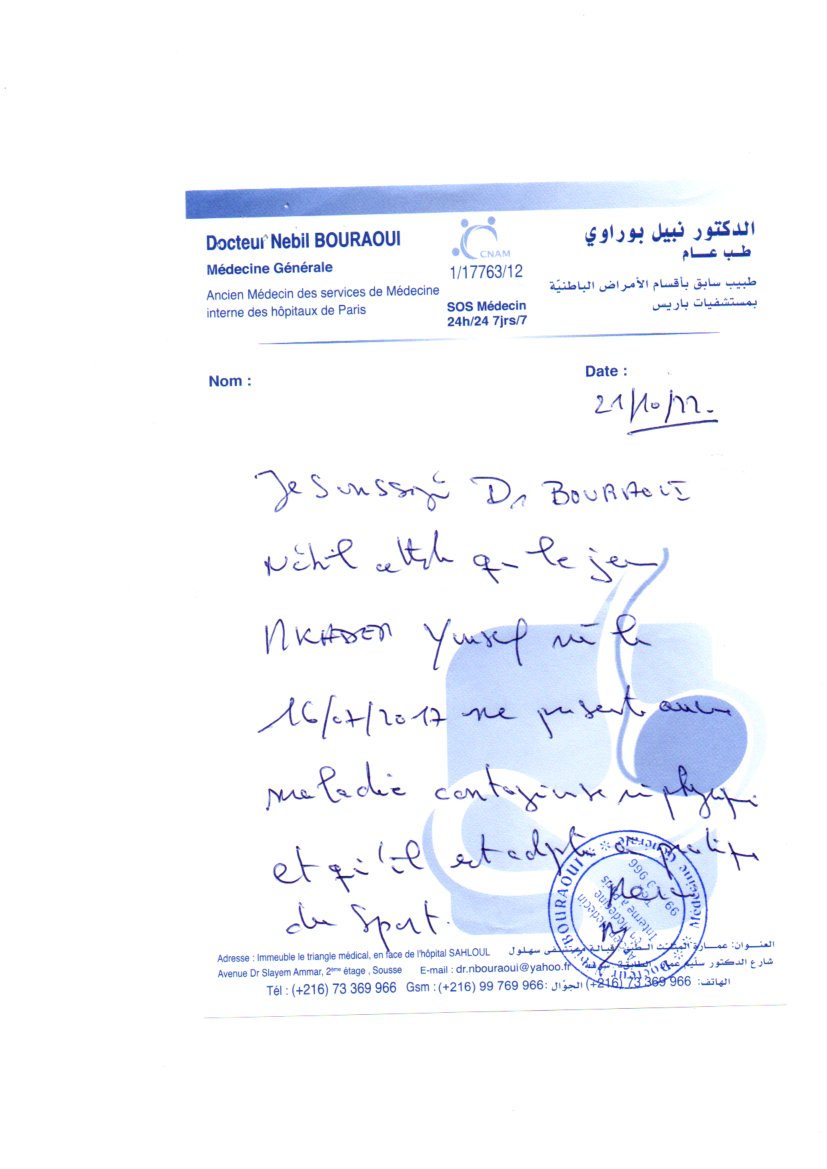 Docteur Nebil BOURAOUI
Médecine Générale
Ancien Médecin des services de Médecine
interne des hôpitaux de Paris
CNAM
1/17763/12
SOS Médecin
24h/24 7jrs/7
الدكتور نبيل بوراوي
طب عام
طبيب سابق بأقسام الأمراض الباطنيّة
بمستشفيات باريس
Nom :
Date :
21/10/22.
Je soussigné Dr BOURAOUI
Nébil atteste que le jeune
Youssef né le
16/07/2017 ne présente aucune
maladie contagieuse ni physique
et qu'il est adpte a pratiquer
du Sport.
BOURAOUI
Médecine Générale
Docteur
Adresse : Immeuble le triangle médical, en face de l'hôpital SAHLOUL
Avenue Dr Slayem Ammar, 2ème étage , Sousse E-mail : dr.nbouraoui@yahoo.fr
Tél : (+216) 73 369 966 Gsm : (+216) 99 769 966
العنوان: عمارة المثلث الطبي قبالة مستشفى سهلول
شارع الدكتور سليم عمار، الطابق
الهاتف: 966 369 73 (216+) الجوّال: